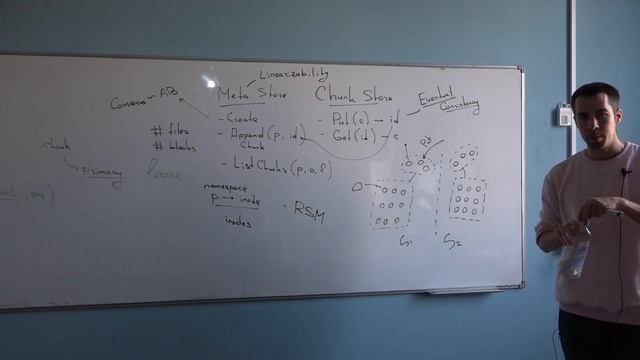 Linearizability
Meta Store
Chunk Store
Consensus ~ AB
- Create
- Append (p, id)
Chunk
- List Chunks (p, o, l)
- Put (c) → id
- Get (id) → c
Eventual
Consistency
# files
# blocks
chunk
primary
lease
, seq)
namespace
p → inode
inodes
- RSM
S1
S2